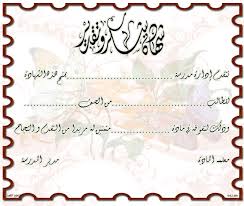 شهادة شكر وتقدير
تتقدم إدارة مدرسة بمنح هذه الشهادة
للطالب من الصف
وذلك لتفوقه في مادة متمنين له مزيدا من التقدم والنجاح
معلم المادة مدير المدرسة